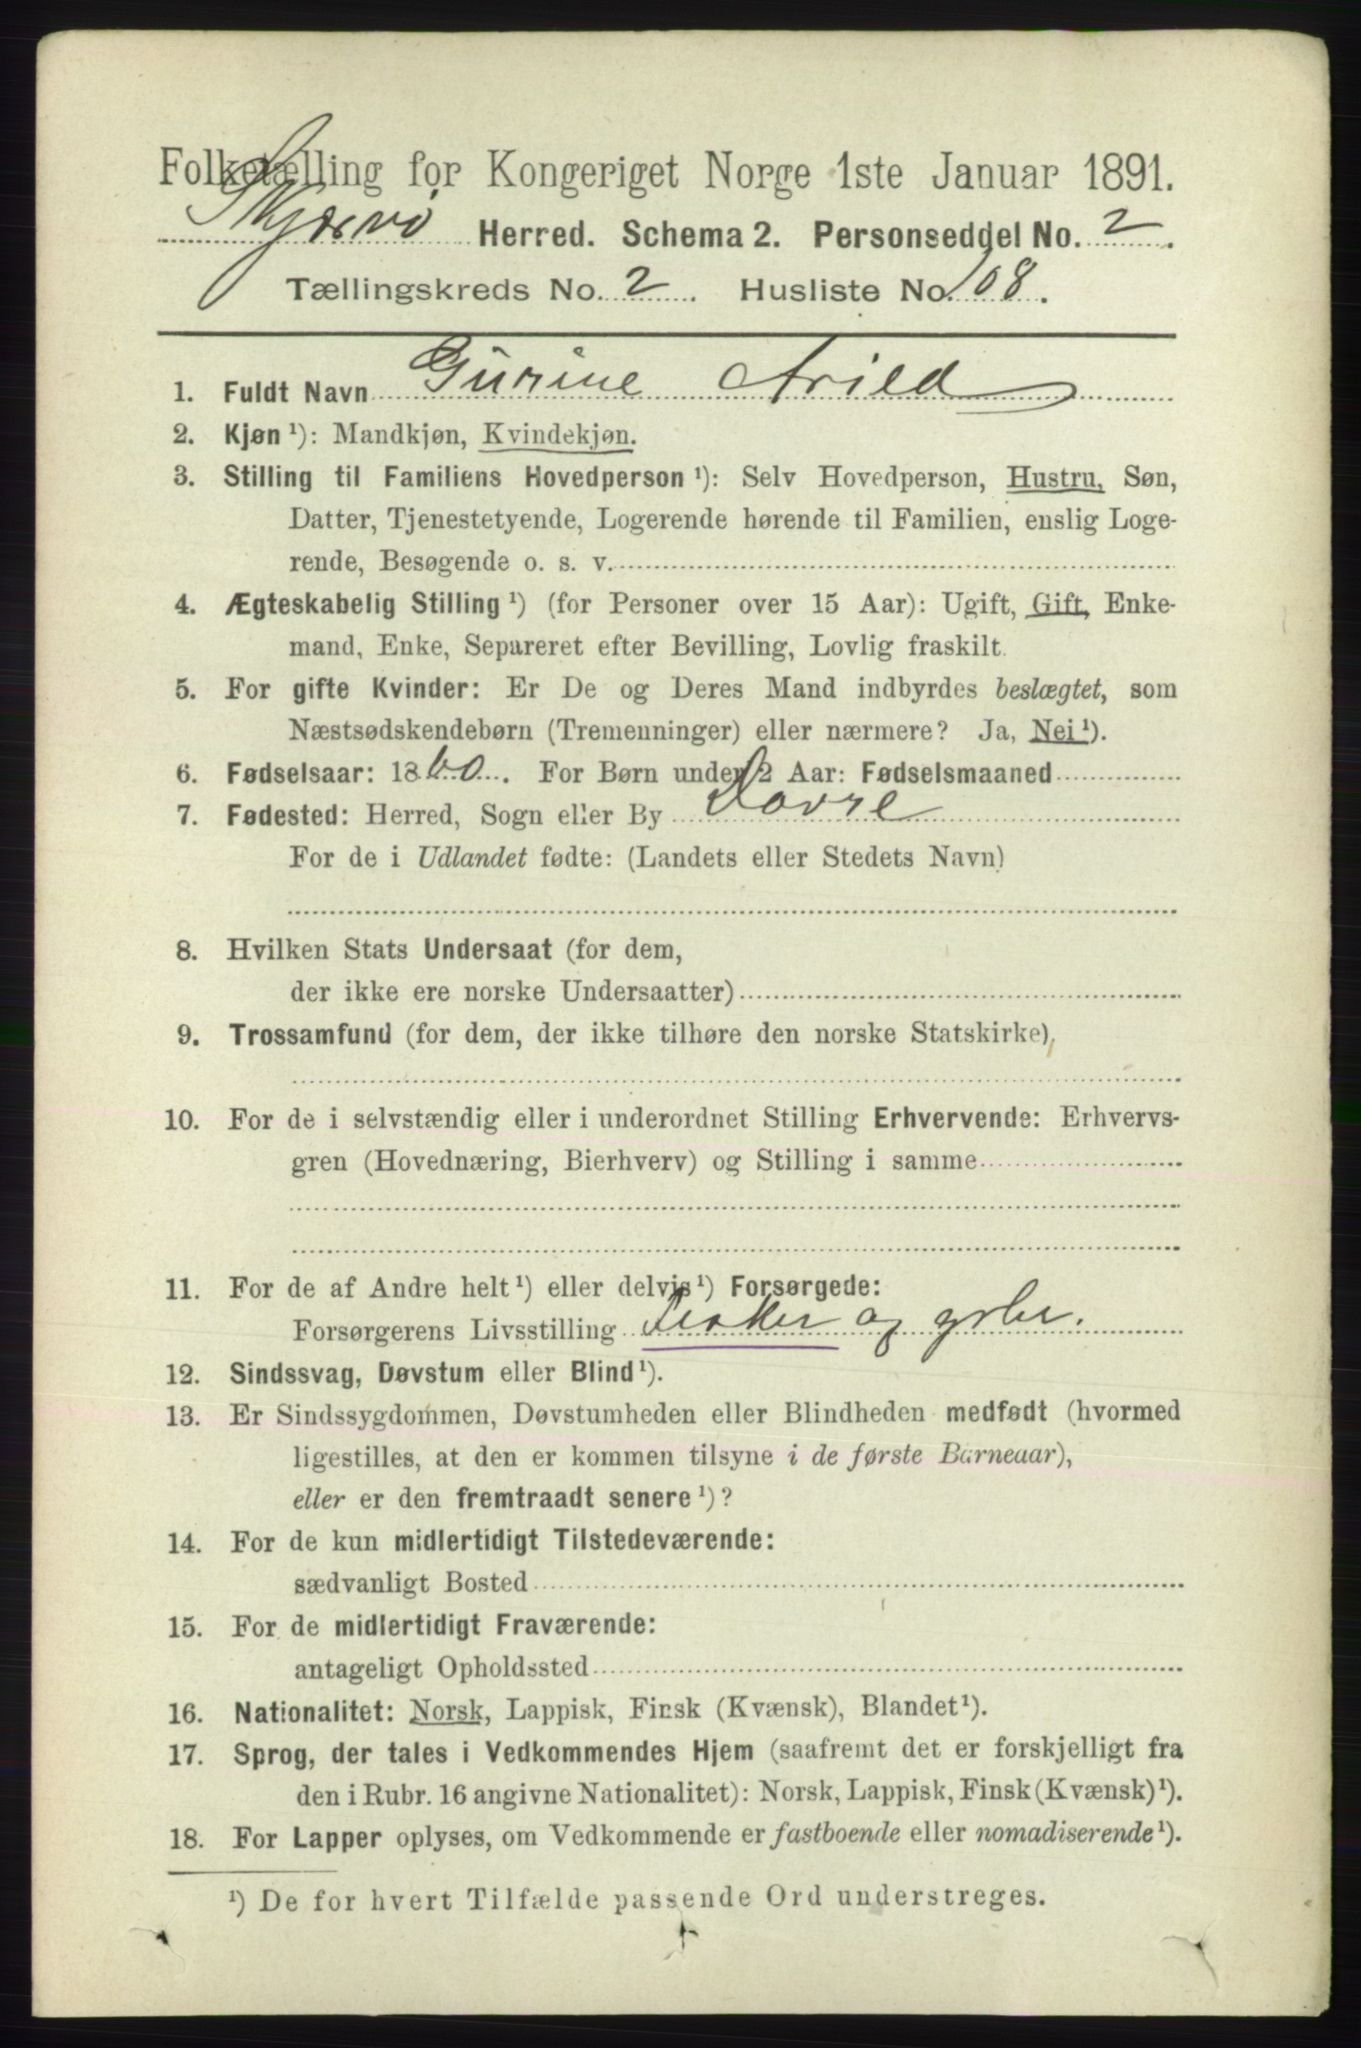 Folketælling for Kongeriget Norge 1ste Januar 1891.
Skjærvø Herred. Schema 2. Personseddel No. 2.
Tællingskreds No. 2. Husliste No. 108.
1. Fuldt Navn Gurine Arild
2. Kjøn ¹): Mandkjøn, Kvindekjøn.
3. Stilling til Familiens Hovedperson ¹): Selv Hovedperson, Hustru, Søn,
Datter, Tjenestetyende, Logerende hørende til Familien, enslig Loge-
rende, Besøgende o. s. v.
4. Ægteskabelig Stilling ¹) (for Personer over 15 Aar): Ugift, Gift, Enke-
mand, Enke, Separeret efter Bevilling, Lovlig fraskilt.
5. For gifte Kvinder: Er De og Deres Mand indbyrdes beslægtet, som
Næstsødskendebørn (Tremenninger) eller nærmere? Ja, Nei ¹).
6. Fødselsaar: 1860. For Børn under 2 Aar: Fødselsmaaned
7. Fødested: Herred, Sogn eller By Dovre
For de i Udlandet fødte: (Landets eller Stedets Navn)
8. Hvilken Stats Undersaat (for dem,
der ikke ere norske Undersaatter)
9. Trossamfund (for dem, der ikke tilhøre den norske Statskirke)
10. For de i selvstændig eller i underordnet Stilling Erhvervende: Erhvervs-
gren (Hovednæring, Bierhverv) og Stilling i samme
11. For de af Andre helt ¹) eller delvis ¹) Forsørgede:
Forsørgerens Livsstilling og
12. Sindssvag, Døvstum eller Blind ¹).
13. Er Sindssygdommen, Døvstumheden eller Blindheden medfødt (hvormed
ligestilles, at den er kommen tilsyne i de første Barneaar),
eller er den fremtraadt senere ¹)?
14. For de kun midlertidigt Tilstedeværende:
sædvanligt Bosted
15. For de midlertidigt Fraværende:
antageligt Opholdssted
16. Nationalitet: Norsk, Lappisk, Finsk (Kvænsk), Blandet ¹).
17. Sprog, der tales i Vedkommendes Hjem (saafremt det er forskjelligt fra
den i Rubr. 16 angivne Nationalitet): Norsk, Lappisk, Finsk (Kvænsk) ¹).
18. For Lapper oplyses, om Vedkommende er fastboende eller nomadiserende ¹).
¹) De for hvert Tilfælde passende Ord understreges.